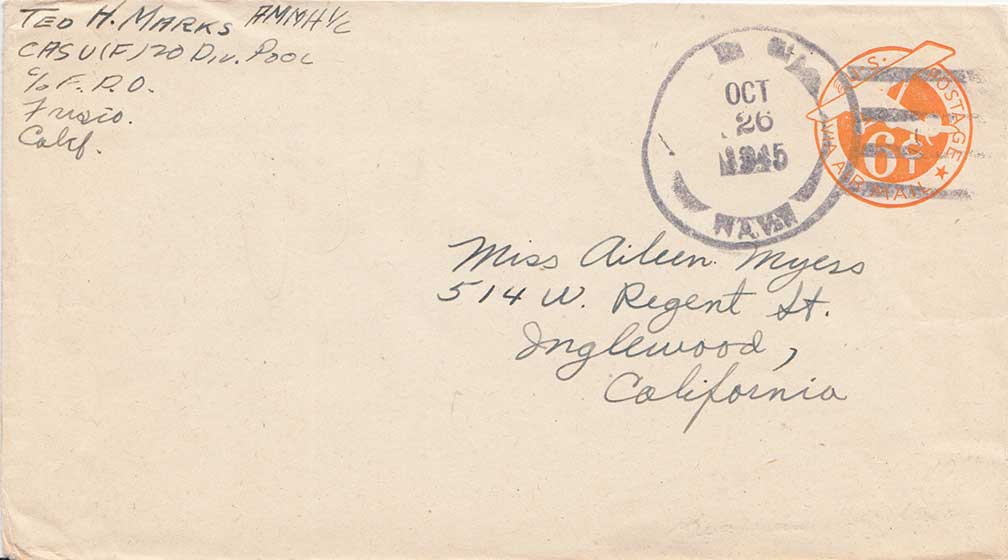 TED H. MARKS AMMH1/C
CASU(F) 20 Div. Pool
c/o F.P.O.
Calif.
OCT
26
1945
NAVY
U.S. POSTAGE
6¢
VIA AIR MAIL
Miss Aileen Myers
514 W. Regent St.
Inglewood,
California